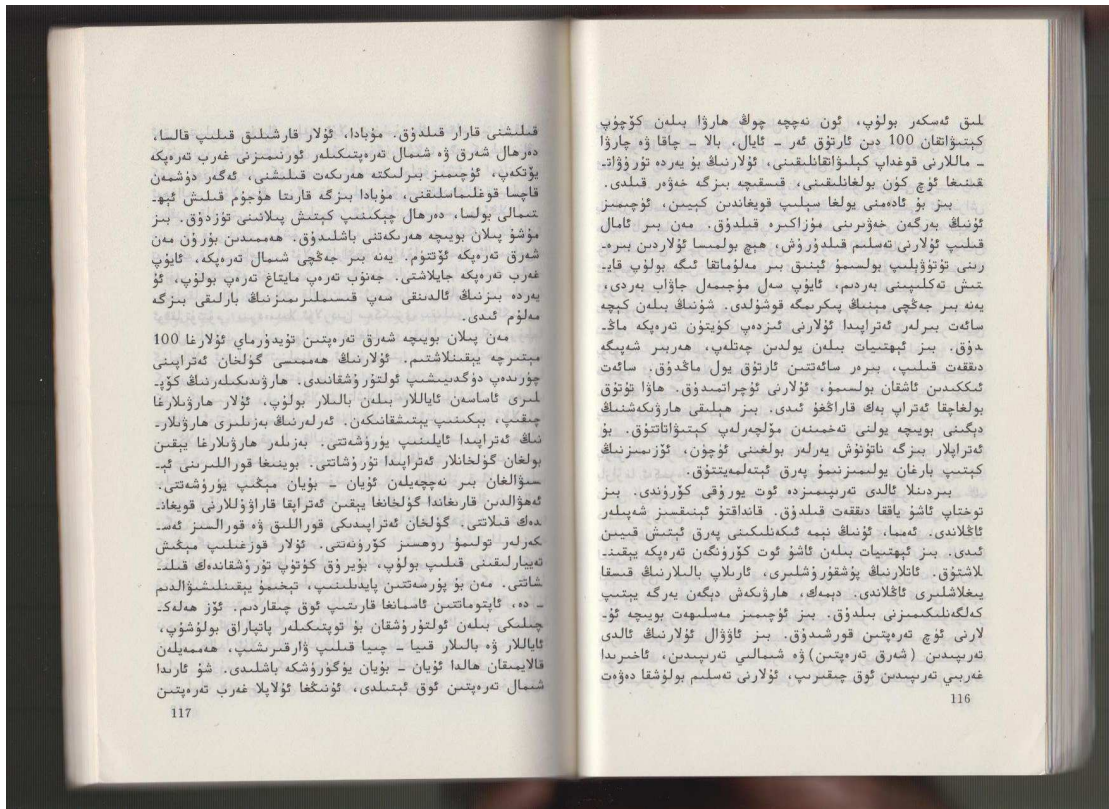 لىق ئەسكەر بولۇپ، ئون نەچچە چوڭ ھارۋا بىلەن كۆچۈپ
كېتىۋاتقان 100 دىن ئارتۇق ئەر ــ ئايال، بالا ــ چاقا ۋە چارۋا
ــ ماللارنى قوغداپ كېلىۋاتقانلىقىنى، ئۇلارنىڭ بۇ يەردە تۇرۇۋاتـ
قىنىغا ئۈچ كۈن بولغانلىقىنى، قىسقىچە بىزگە خەۋەر قىلدى.
بىز بۇ ئادەمنى يولغا سېلىپ قويغاندىن كېيىن، ئۈچىمىز
ئۇنىڭ بەرگەن خەۋىرىنى مۇزاكىرە قىلدۇق. مەن بىر ئامال
قىلىپ ئۇلارنى تەسلىم قىلدۇرۇش، ھېچ بولمىسا ئۇلاردىن بىرەـ
رىنى تۇتۇۋېلىپ بولسىمۇ ئېنىق بىر مەلۇماتقا ئىگە بولۇپ قايـ
تىش تەكلىپىنى بەردىم، ئايۇپ سەل مۈجمەل جاۋاب بەردى،
يەنە بىر جەڭچى مېنىڭ پىكرىمگە قوشۇلدى. شۇنىڭ بىلەن كېچە
سائەت بىرلەر ئەتراپىدا ئۇلارنى ئىزدەپ كۈيتۈن تەرەپكە ماڭـ
دۇق. بىز ئېھتىيات بىلەن يولدىن چەتلەپ، ھەربىر شەپىگە
دىققەت قىلىپ، بىرەر سائەتتىن ئارتۇق يول ماڭدۇق. سائەت
ئىككىدىن ئاشقان بولسىمۇ، ئۇلارنى ئۇچراتمىدۇق. ھاۋا تۇتۇق
بولغاچقا ئەتراپ بەك قاراڭغۇ ئىدى. بىز ھېلىقى ھارۋىكەشنىڭ
دېگىنى بويىچە يولنى تەخمىنەن مۆلچەرلەپ كېتىۋاتاتتۇق. بۇ
ئەتراپلار بىزگە ناتونۇش يەرلەر بولغىنى ئۈچۈن، ئۆزىمىزنىڭ
كېتىپ بارغان يولىمىزنىمۇ پەرق ئېتەلمەيتتۇق.
بىردىنلا ئالدى تەرىپىمىزدە ئوت يورۇقى كۆرۈندى. بىز
توختاپ ئاشۇ ياققا دىققەت قىلدۇق. قانداقتۇ ئېنىقسىز شەپىلەر
ئاڭلاندى. ئەمما، ئۇنىڭ نېمە ئىكەنلىكىنى پەرق ئېتىش قىيىن
ئىدى. بىز ئېھتىيات بىلەن ئاشۇ ئوت كۆرۈنگەن تەرەپكە يېقىنـ
لاشتۇق. ئاتلارنىڭ پۇشقۇرۇشلىرى، ئارىلاپ بالىلارنىڭ قىسقا
يىغلاشلىرى ئاڭلاندى. دېمەك، ھارۋىكەش دېگەن يەرگە يېتىپ
كەلگەنلىكىمىزنى بىلدۇق. بىز ئۈچىمىز مەسلىھەت بويىچە ئۇـ
لارنى ئۈچ تەرەپتىن قورشىدۇق. بىز ئاۋۋال ئۇلارنىڭ ئالدى
تەرىپىدىن (شەرق تەرەپتىن) ۋە شىمالىي تەرىپىدىن، ئاخىرىدا
غەربىي تەرىپىدىن ئوق چىقىرىپ، ئۇلارنى تەسلىم بولۇشقا دەۋەت
116
قىلىشنى قارار قىلدۇق. مۇبادا، ئۇلار قارشىلىق قىلىپ قالسا،
دەرھال شەرق ۋە شىمال تەرەپتىكىلەر ئورنىمىزنى غەرب تەرەپكە
يۆتكەپ، ئۈچىمىز بىرلىكتە ھەرىكەت قىلىشنى، ئەگەر دۈشمەن
قاچسا قوغلىماسلىقنى، مۇبادا بىزگە قارىتا ھۇجۇم قىلىش ئېھـ
تىمالى بولسا، دەرھال چېكىنىپ كېتىش پىلانىنى تۈزدۇق. بىز
مۇشۇ پىلان بويىچە ھەرىكەتنى باشلىدۇق. ھەممىدىن بۇرۇن مەن
شەرق تەرەپكە ئۆتتۈم. يەنە بىر جەڭچى شىمال تەرەپكە، ئايۇپ
غەرب تەرەپكە جايلاشتى. جەنۇب تەرەپ مايتاغ تەرەپ بولۇپ، ئۇ
يەردە بىزنىڭ ئالدىنقى سەپ قىسىملىرىمىزنىڭ بارلىقى بىزگە
مەلۇم ئىدى.
مەن پىلان بويىچە شەرق تەرەپتىن تۇيدۇرماي ئۇلارغا 100
مېتىرچە يېقىنلاشتىم. ئۇلارنىڭ ھەممىسى گۈلخان ئەتراپىنى
چۆرىدەپ دۈگدىيىشىپ ئولتۇرۇشقانىدى. ھارۋىدىكىلەرنىڭ كۆپـ
لىرى ئاساسەن ئاياللار بىلەن بالىلار بولۇپ، ئۇلار ھارۋىلارغا
چىقىپ، يېكىنىپ يېتىشقانىكەن. ئەرلەرنىڭ بەزىلىرى ھارۋىلارـ
نىڭ ئەتراپىدا ئايلىنىپ يۈرۈشەتتى. بەزىلەر ھارۋىلارغا يېقىن
بولغان گۈلخانلار ئەتراپىدا تۇرۇشاتتى. بوينىغا قوراللىرىنى ئېـ
سىۋالغان بىر نەچچەيلەن ئۇيان ــ بۇيان مېڭىپ يۈرۈشەتتى.
ئەھۋالدىن قارىغاندا گۈلخانغا يېقىن ئەتراپقا قاراۋۇللارنى قويغانـ
دەك قىلاتتى. گۈلخان ئەتراپىدىكى قوراللىق ۋە قورالسىز ئەسـ
كەرلەر تولىمۇ روھسىز كۆرۈنەتتى. ئۇلار قوزغىلىپ مېڭىش
تەييارلىقىنى قىلىپ بولۇپ، بۇيرۇق كۈتۈپ تۇرۇشقاندەك قىلىـ
شاتتى. مەن بۇ پۇرسەتتىن پايدىلىنىپ، تېخىمۇ يېقىنلىشىۋالدىم
ــ دە، ئاپتوماتتىن ئاسمانغا قارىتىپ ئوق چىقاردىم. ئۆز ھەلەكـ
چىلىكى بىلەن ئولتۇرۇشقان بۇ توپتىكىلەر پاتىپاراق بولۇشۇپ،
ئاياللار ۋە بالىلار قىيا ــ چىيا قىلىپ ۋارقىرىشىپ، ھەممەيلەن
قالايمىقان ھالدا ئۇيان ــ بۇيان يۈگۈرۈشكە باشلىدى. شۇ ئارىدا
شىمال تەرەپتىن ئوق ئېتىلدى، ئۇنىڭغا ئۇلاپلا غەرب تەرەپتىن
117